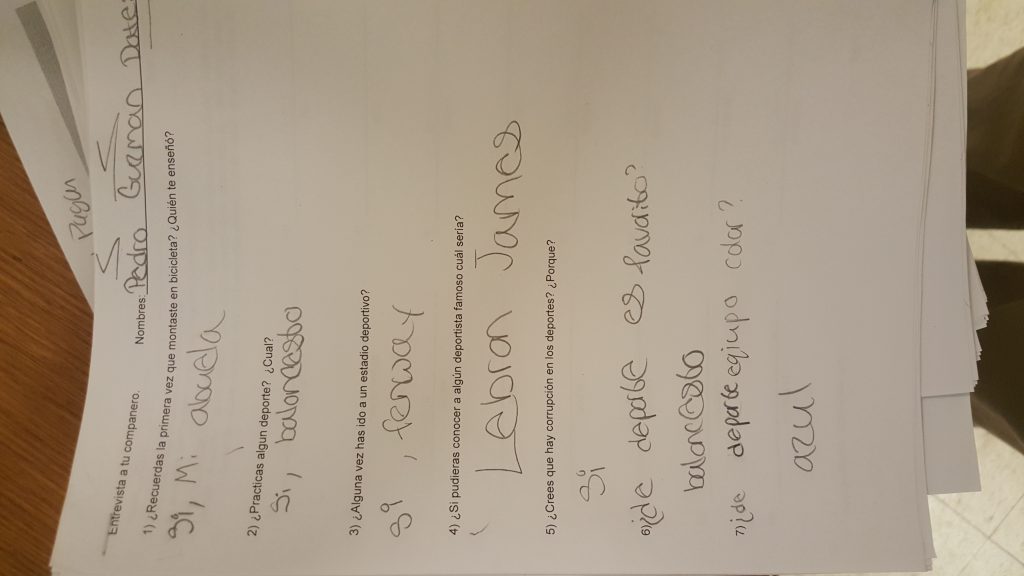 Pagan
Entrevista a tu companero. Nombres: Pedro Guzman Date:
1) ¿Recuerdas la primera vez que montaste en bicicleta? ¿Quién te enseñó?
Si, Mi abuela
2) ¿Practicas algun deporte? ¿Cual?
Si, baloncesto
3) ¿Alguna vez has ido a un estadio deportivo?
Si, fenway
4) ¿Si pudieras conocer a algún deportista famoso cuál sería?
Lebron James
5) ¿Crees que hay corrupción en los deportes? ¿Porque?
Si
6) ¿de deporte es favorito?
baloncesto
7) ¿de deporte eqiupo color?
azul